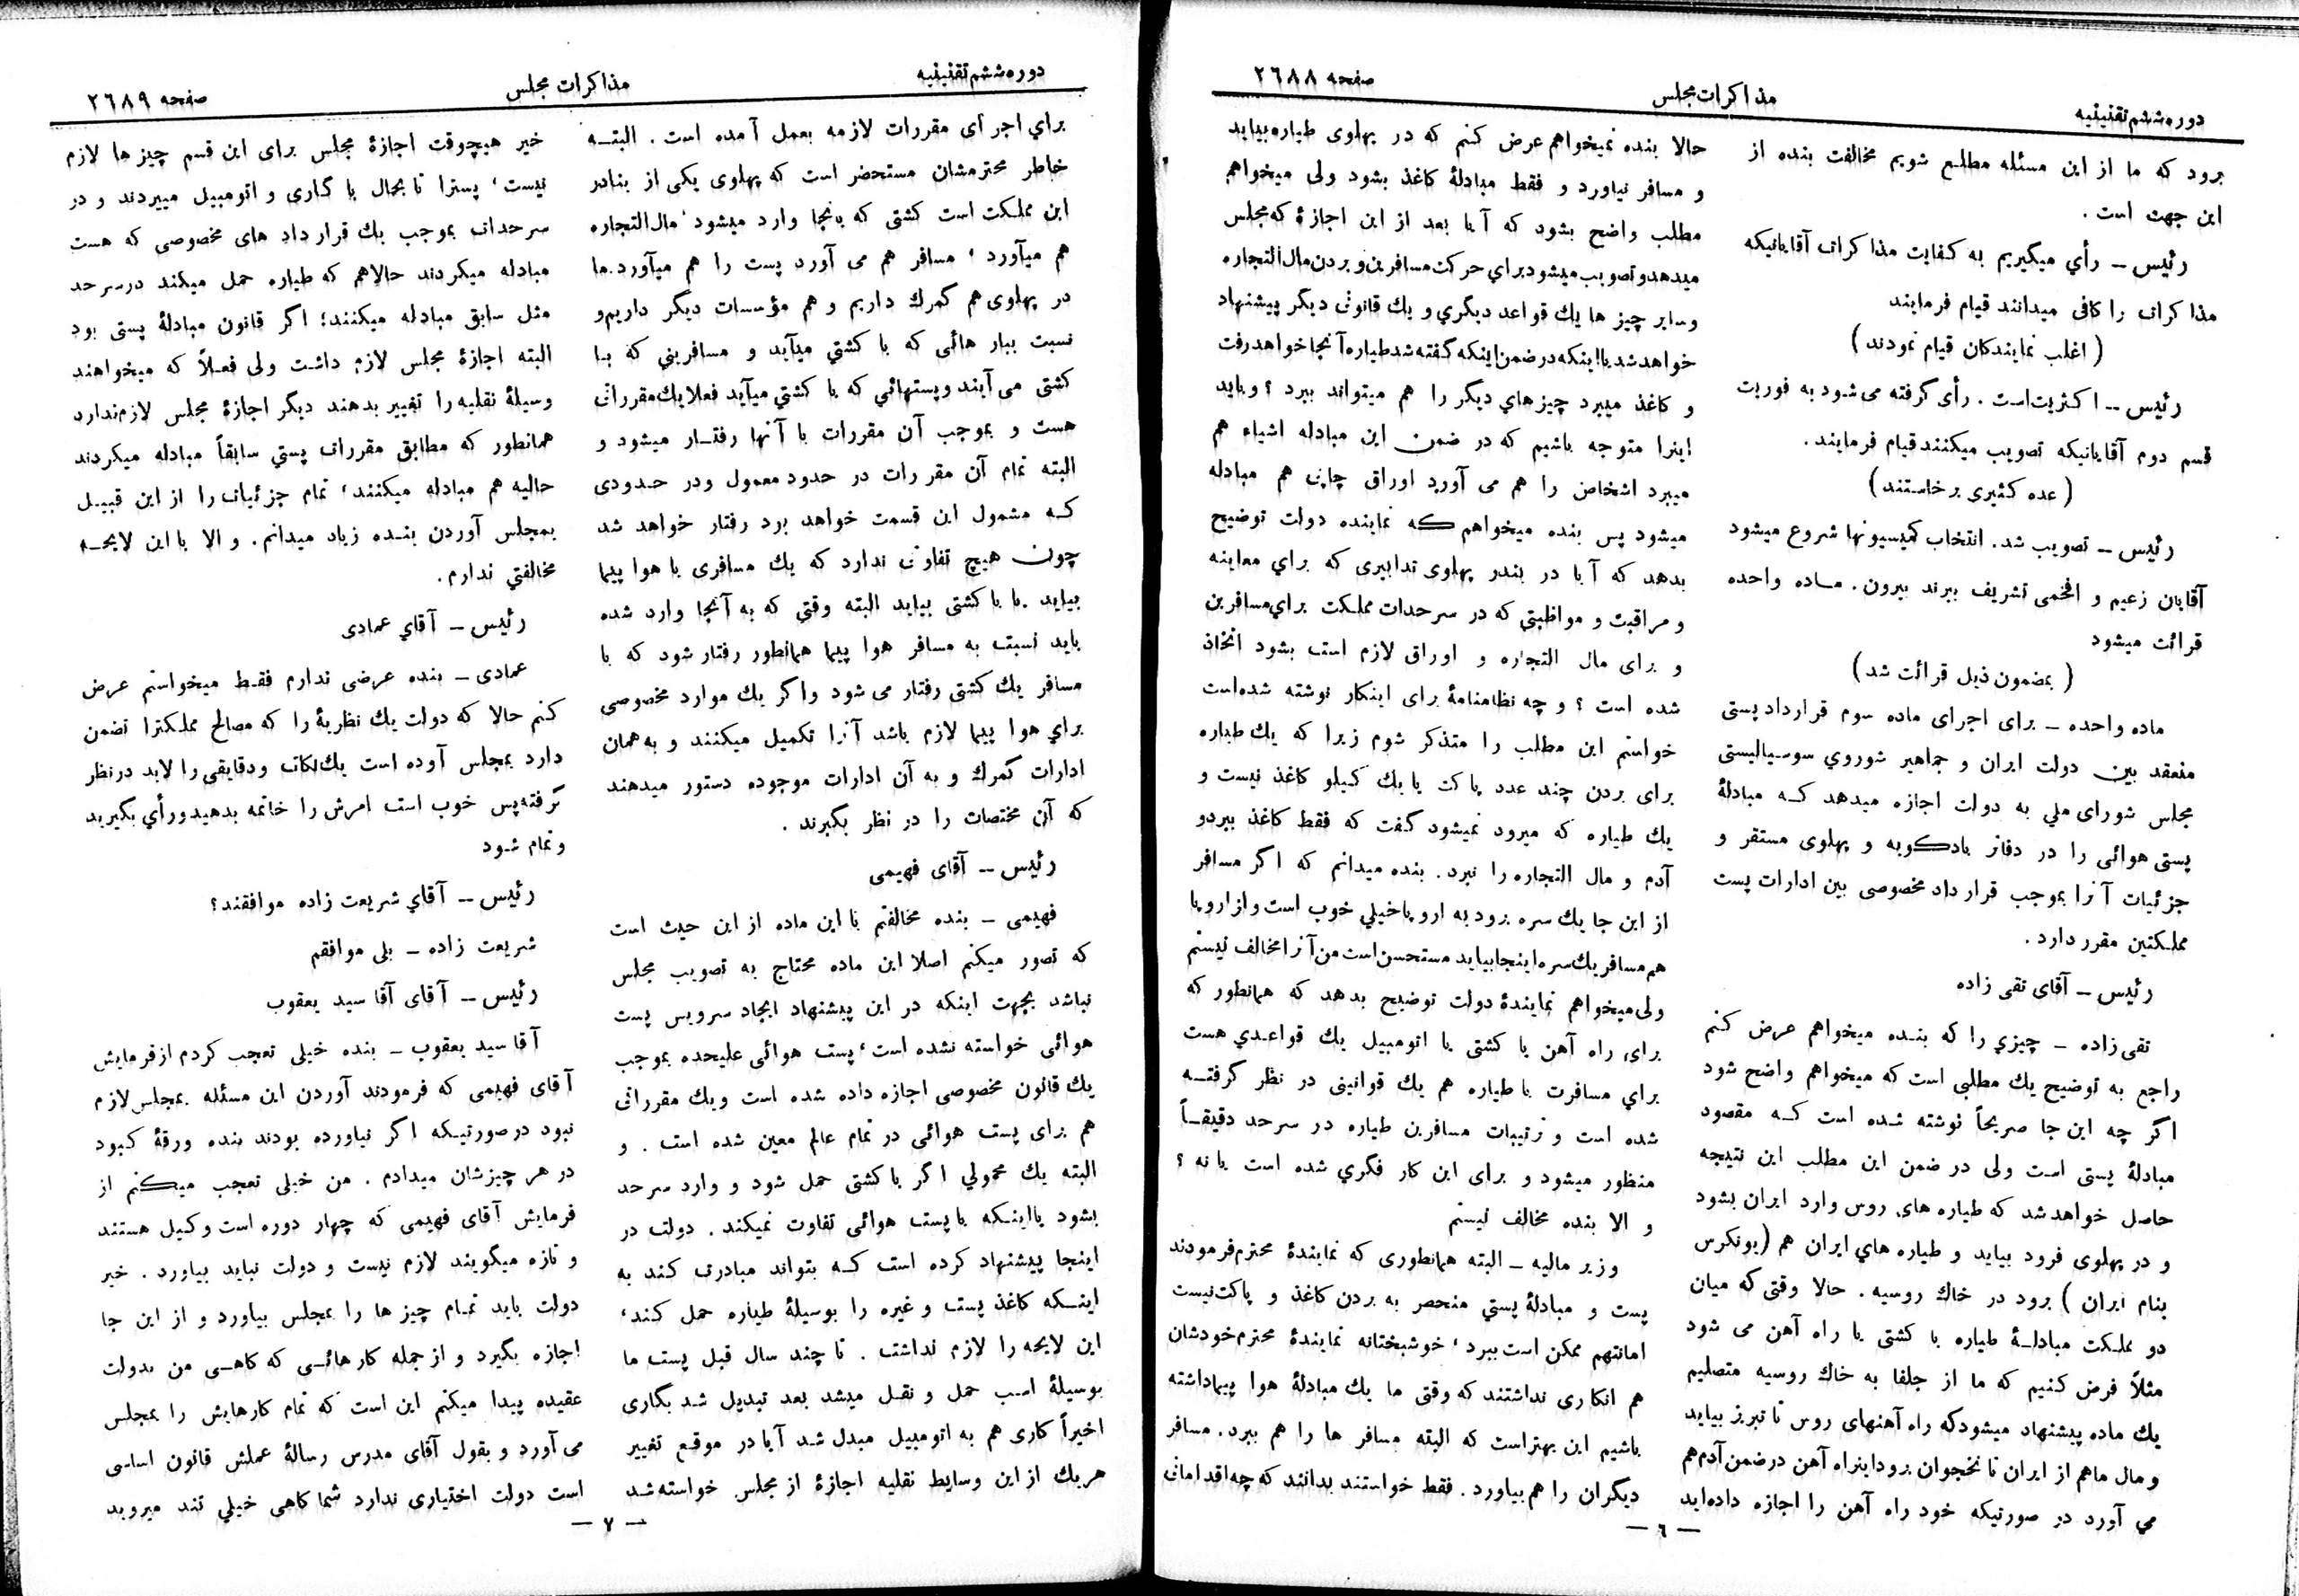 دوره ششم تقنینیه
مذاکرات مجلس
صفحه ۲٦۸۸
برود که ما از این مسئله مطلع شویم مخالفت بنده از
این جهت است .
رئیس – رأي میگیریم به کفایت مذاکرات آقایانیکه
مذاکرات را کافی میدانند قیام فرمایند
( اغلب نمایندکان قیام نمودند )
رئیس – اکثریت است . رأی گرفته می شود به فوریت
قسم دوم آقایانیکه تصویب میکنند قیام فرمایند .
( عده کثیری برخاستند )
رئیس – تصویب شد . انتخاب کمیسیونها شروع میشود
آقایان زعیم و افخمی تشریف ببرند بیرون . مـاده واحده
قرائت میشود
( بمضمون ذیل قرائت شد )
ماده واحده – برای اجرای ماده سوم قرارداد پستی
منعقد بین دولت ایران و جماهیر شوروي سوسیالیستی
مجلس شورای ملي به دولت اجازه میدهد کـه مبادلهٔ
پستی هوائی را در دفاتر بادکوبه و پهلوی مستقر و
جزئیات آنرا بموجب قرارداد مخصوصی بین ادارات پست
مملکتین مقرر دارد .
رئیس – آقای تقی زاده
تقی زاده – چیزي را که بنـده میخواهم عرض کنم
راجع به توضیح یك مطلبی است که میخواهم واضح شود
اگر چه این جا صریحاً نوشته شده است کـه مقصود
مبادلهٔ پستی است ولی در ضمن این مطلب این نتیجه
حاصل خواهد شد که طیاره های روس وارد ایران بشود
و در پهلوی فرود بیاید و طیاره هاي ایران هم (یونکرس
بنام ایران ) برود در خاك روسیه . حالا وقتی که میان
دو مملکت مبادلـهٔ طیاره یا کشتی یا راه آهن می شود
مثلاً فرض کنیم که ما از جلفا به خاك روسیه متصلیم
یك ماده پیشنهاد میشود که راه آهنهای روس تا تبریز بیاید
و مال ما هم از ایران تا نخجوان برود اینراه آهن در ضمن آدم هم
می آورد در صورتیکه خود راه آهن را اجازه داده‌اید
حالا بنده نمیخواهم عرض کنم که در پهلوی طیاره بیاید
و مسافر نیاورد و فقط مبادلهٔ کاغذ بشود ولی میخواهم
مطلب واضح بشود که آیا بعد از این اجازهٔ که مجلس
میدهد و تصویب میشود براي حرکت مسافرین و بردن مال التجاره
و سایر چیز ها یك قواعد دیگري و یك قانونی دیگر پیشنهاد
خواهد شد یا اینکه در ضمن اینکه گفته شد طیاره آنجا خواهد رفت
و کاغذ میبرد چیزهاي دیگر را هم میتواند ببرد ؟ و باید
اینرا متوجه باشیم که در ضمن این مبادله اشیاء هم
میبرد اشخاص را هم می آورد اوراق چاپی هم مبادله
میشود پس بنده میخواهم که نماینده دولت توضیح
بدهد که آیا در بندر پهلوی تدابیری که براي معاینه
و مراقبت و مواظبتی که در سرحدات مملکت براي مسافرین
و برای مال التجاره و اوراق لازم است بشود اتخاذ
شده است ؟ و چه نظامنامهٔ برای اینکار نوشته شده‌است
خواستم این مطلب را متذکر شوم زیرا که یك طیاره
برای بردن چند عدد پاکت یا یك کیلو کاغذ نیست و
یك طیاره که میرود نمیشود گفت که فقط کاغذ ببرد و
آدم و مال التجاره را نبرد . بنده میدانم که اگر مسافر
از این جا یك سره برود به اروپا خیلي خوب است و از اروپا
هم مسافر یك سره اینجا بیاید مستحسن است من آنرا مخالف نیستم
ولی میخواهم نمایندهٔ دولت توضیح بدهد که همانطور که
برای راه آهن یا کشتی یا اتومبیل یك قواعدي هست
براي مسافرت با طیاره هم یك قوانینی در نظر گرفتـه
شده است و ترتیبات مسافرین طیاره در سرحد دقیقـاً
منظور میشود و برای این کار فکري شده است یا نه ؟
و الا بنده مخالف نیستم
وزیر مالیه – البته همانطوری که نمایندهٔ محترم فرمودند
پست و مبادلهٔ پستي منحصر به بردن کاغذ و پاکت نیست
امانتهم ممکن است ببرد ، خوشبختانه نمایندهٔ محترم خودشان
هم انکاری نداشتند که وقتی ما یك مبادلهٔ هوا پیما داشته
باشیم این بهتر است که البته مسافر ها را هم ببرد . مسافر
دیگران را هم بیاورد . فقط خواستند بدانند که چه اقداماتی
– ٦ –
دوره ششم تقنینیه
مذاکرات مجلس
صفحه ۲٦۸۹
براي اجرای مقررات لازمه بعمل آمده است . البتـه
خاطر محترمشان مستحضر است که پهلوی یکی از بنادر
این مملکت است کشتی که بانجا وارد میشود ، مال التجاره
هم میآورد ، مسافر هم می آورد پست را هم میآورد . ما
در پهلوی هم گمرك داریم و هم مؤسسات دیگر داریم و
نسبت ببار هائی که با کشتی میآید و مسافرینی که بـا
کشتی می آیند و پستهائي که با کشتي میآید فعلا یك مقرراتی
هست و بموجب آن مقررات با آنها رفتـار میشود و
البته تمام آن مقررات در حدود معمول و در حـدودی
کـه مشمول این قسمت خواهد بود رفتار خواهد شد
چون هیچ تفاوتی ندارد که یك مسافری با هوا پیما
بیاید یا با کشتی بیاید البته وقتي که به آنجا وارد شده
باید نسبت به مسافر هوا پیما همانطور رفتار شود که با
مسافر یك کشتی رفتار می شود و اگر یك موارد مخصوصی
براي هوا پیما لازم باشد آنرا تکمیل میکنند و به همان
ادارات گمرك و به آن ادارات موجوده دستور میدهند
که آن مختصات را در نظر بگیرند .
رئیس – آقای فهیمی
فهیمی – بنده مخالفتم با این ماده از این حیث است
که تصور میکنم اصلا این ماده محتاج به تصویب مجلس
نباشد بجهت اینکه در این پیشنهاد ایجاد سرویس پست
هوائی خواسته نشده است ، پست هوائی علیحده بموجب
یك قانون مخصوصی اجازه داده شده است و یك مقرراتی
هم برای پست هوائی در تمام عالم معین شده است . و
البته یك محمولي اگر با کشتی حمل شود و وارد سرحد
بشود یا اینـکه با پست هوائی تفاوت نمیکند . دولت در
اینجا پیشنهاد کرده است کـه بتواند مبادرت کند به
اینـکه کاغذ پست و غیره را بوسیلهٔ طیاره حمل کند ،
این لایحه را لازم نداشت . تا چند سال قبل پست ما
بوسیلهٔ اسب حمل و نقـل میشد بعد تبدیل شد بگاری
اخیراً کاری هم به اتومبیل مبدل شد آیا در موقع تغییر
هریك از این وسایط نقلیه اجازهٔ از مجلس خواسته شـد
خیر هیچوقت اجازهٔ مجلس برای این قسم چیز ها لازم
نیست ، پسترا تا بحال با گاری و اتومبیل میبردند و در
سرحدات بموجب یك قرارداد های مخصوصی که هست
مبادله میکردند حالا هم که طیاره حمل میکند در سرحد
مثل سابق مبادله میکنند ؛ اگر قانون مبادلهٔ پستی بود
البته اجازهٔ مجلس لازم داشت ولی فعـلاً که میخواهند
وسیلهٔ نقلیه را تغییر بدهند دیگر اجازهٔ مجلس لازم ندارد
همانطور که مطابق مقررات پستي سابقاً مبادله میکردند
حالیه هم مبادله میکنند ، تمام جزئیات را از این قبیـل
بمجلس آوردن بنـده زیاد میدانم . و الا با این لایحـه
مخالفتي ندارم .
رئیس – آقاي عمادی
عمادی – بنده عرضی ندارم فقـط میخواستم عرض
کنم حالا که دولت یك نظریهٔ را که مصالح مملکترا تضمن
دارد بمجلس آوده است یك نکات و دقایقی را لابد در نظر
گرفته پس خوب است امرش را خاتمه بدهید و رأي بگیرید
و تمام شود
رئیس – آقاي شریعت زاده موافقند ؟
شریعت زاده – بلی موافقم
رئیس – آقای آقا سید یعقوب
آقا سید یعقوب – بنده خیلی تعجب کردم از فرمایش
آقای فهیمی که فرمودند آوردن این مسئله بمجلس لازم
نبود در صورتیـکه اگر نیاورده بودند بنده ورقهٔ کبود
در هر چیزشان میدادم . من خیلی تعجب میکنم از
فرمایش آقای فهیمی که چهار دوره است وکیل هستند
و تازه میگویند لازم نیست و دولت نباید بیاورد . خیر
دولت باید تمـام چیز ها را بمجلس بیاورد و از این جا
اجازه بگیرد و از جمله کار هائـی که کاهـی من بدولت
عقیده پیدا میکنم این است که تمام کارهایش را بمجلس
می آورد و بقول آقای مدرس رسالهٔ عملش قانون اساسی
است دولت اختیاری ندارد شما کاهی خیلي تند میروید
– ۷ –